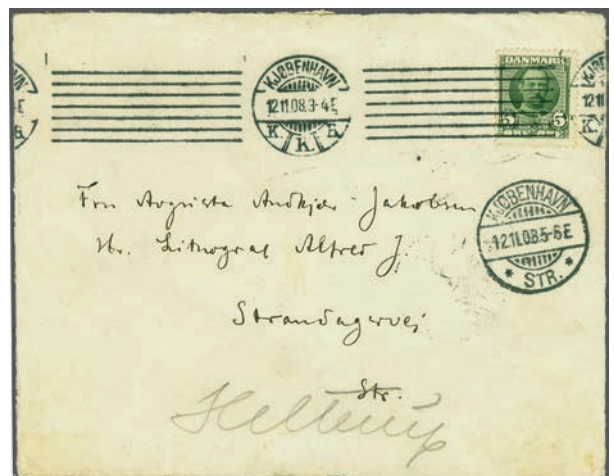 KJØBENHAVN
12.11.08.3-4E
K. K. B.
DANMARK
5 5
KJØBENHAVN
12.11.08.5-6E
STR.
Fru Augusta Andkjær-Jakobsen
Hr. Litograf Alfred J.
Str.
Hellerup